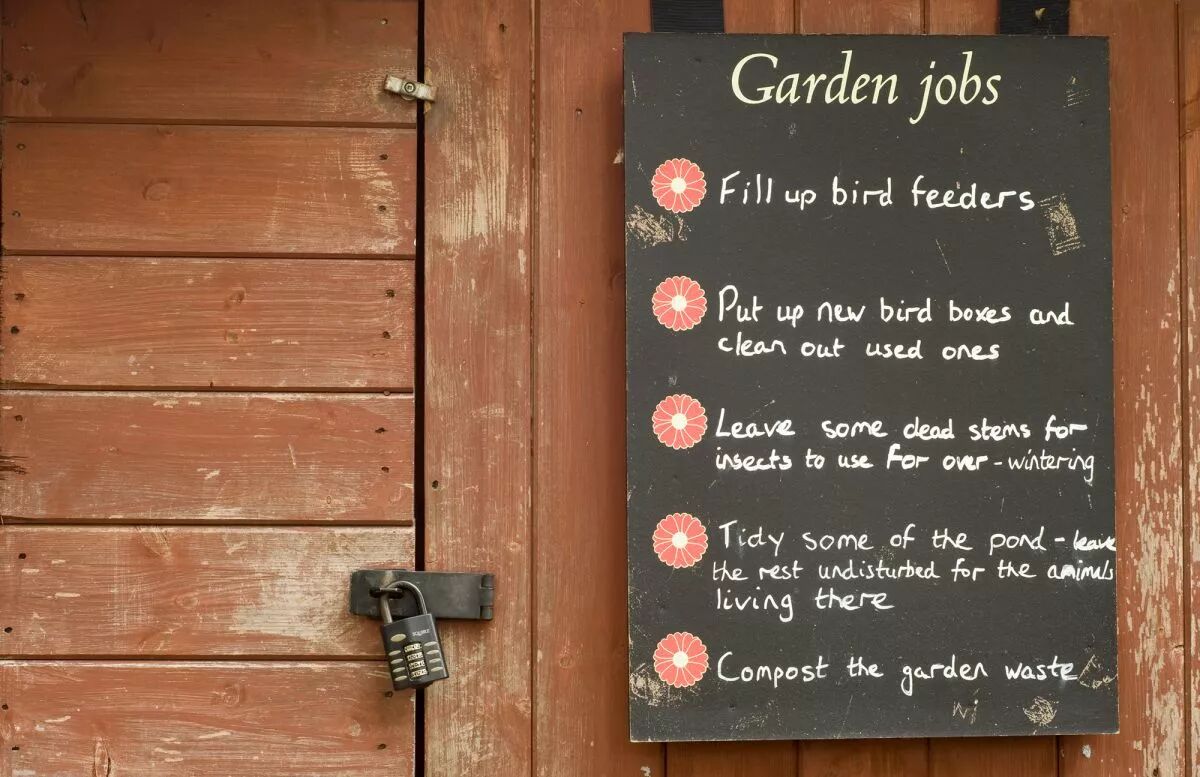 Garden jobs
Fill up bird feeders
Put up new bird boxes and
clean out used ones
Leave some dead stems for
insects to use for over-wintering
Tidy some of the pond - leave
the rest undisturbed for the animals
living there
Compost the garden waste
SQUIRE